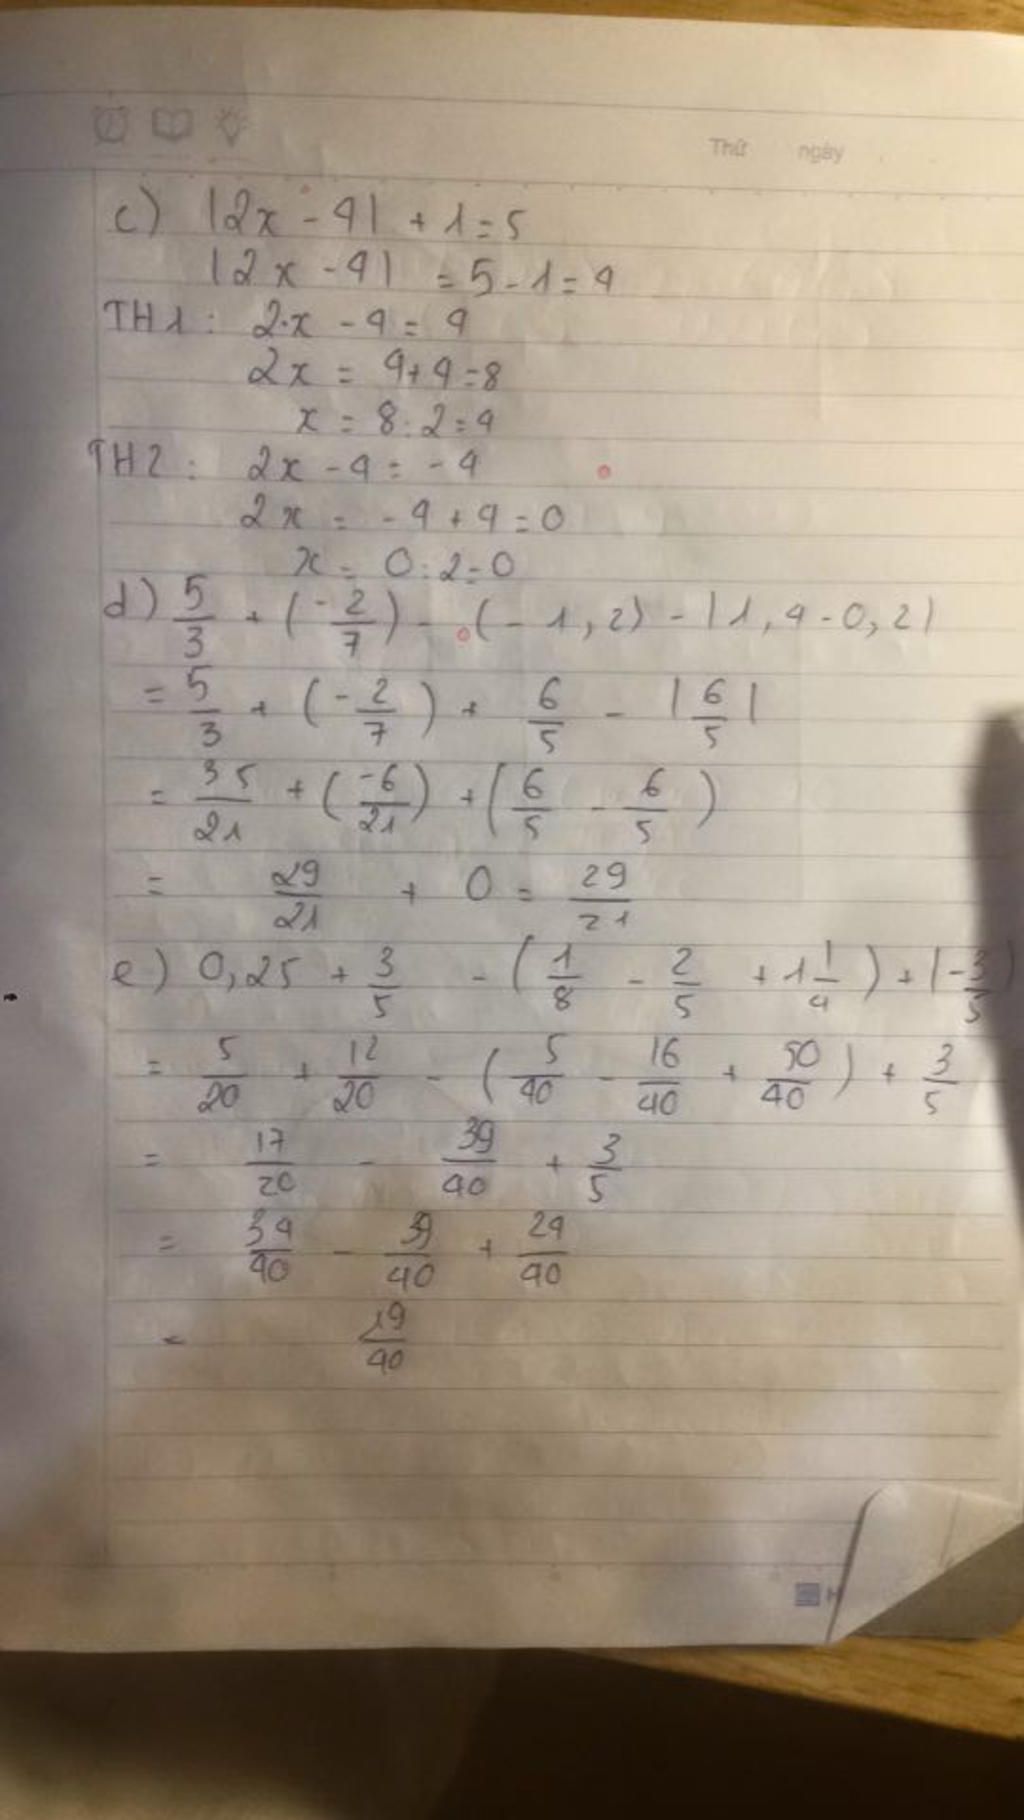 Thứ ngày
c) |2x - 4| + 1 = 5
|2x - 4| = 5 - 1 = 4
TH1: 2.x - 4 = 4
2x = 4 + 4 = 8
x = 8 : 2 = 4
TH2: 2x - 4 = -4
2x = -4 + 4 = 0
x = 0 : 2 = 0
d) 5/3 + (-2/7) - (-1,2) - |1,4 - 0,2|
= 5/3 + (-2/7) + 6/5 - |6/5|
= 35/21 + (-6/21) + (6/5 - 6/5)
= 29/21 + 0 = 29/21
e) 0,25 + 3/5 - (1/8 - 2/5 + 1 1/4) + |-3/5|
= 5/20 + 12/20 - (5/40 - 16/40 + 50/40) + 3/5
= 17/20 - 39/40 + 3/5
= 34/40 - 39/40 + 24/40
= 19/40